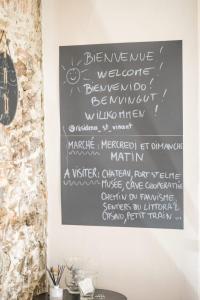 BIENVENUE !
WELCOME !
BIENVENIDO !
BENVINGUT !
WILLKOMMEN !
@résidence_st_vincent
MARCHÉ : MERCREDI ET DIMANCHE
MATIN
À VISITER : CHATEAU, FORT ST ELME
MUSÉE, CAVE COOPERATIVE
CHEMIN DU FAUVISME,
SENTIERS DU LITTORAL
CASINO, PETIT TRAIN ...